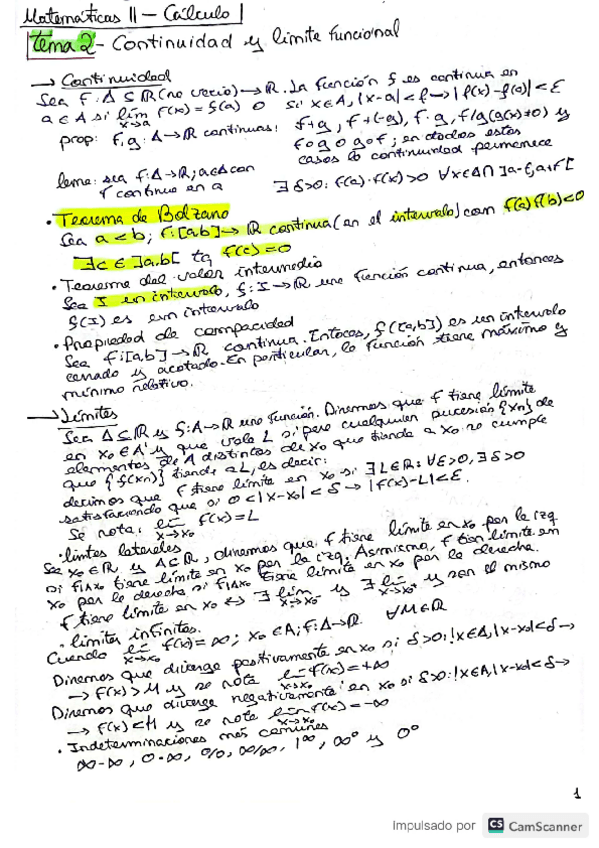 Matemáticas II - Cálculo I
tema 2 - Continuidad y límite funcional
→ Continuidad
Sea f: A ⊆ ℝ (no vacío) → ℝ. La función f es continua en
a ∈ A si lim x→a f(x) = f(a) o si x ∈ A, |x-a| < δ → |f(x)-f(a)| < ε
prop: f, g: A → ℝ continuas: f+g, f+(-g), f·g, f/g (g(x)≠0) y
fog o gof; en todos estos
casos la continuidad permanece
lema: sea f: A → ℝ; a ∈ A con
f continua en a ∃ δ>0: f(a)·f(x) > 0 ∀x ∈ A ∩ ]a-δ, a+δ[
· Teorema de Bolzano
Sea a < b; f: [a,b] → ℝ continua (en el intervalo) con f(a)f(b)<0
∃c ∈ ]a,b[ tq f(c) = 0
· Teorema del valor intermedio
Sea I un intervalo, f: I → ℝ una función continua, entonces
f(I) es un intervalo
· Propiedad de compacidad
Sea f: [a,b] → ℝ continua. Entoces, f([a,b]) es un intervalo
cerrado y acotado. En particular, la función tiene máximo y
mínimo relativo.
→ Límites
Sea A ⊆ ℝ y f: A → ℝ una función. Diremos que f tiene límite
en x₀ ∈ A' y que vale L si para cualquier sucesión {xn} de
elementos de A distintos de x₀ que tienda a x₀ se cumple
que {f(xn)} tiende a L, es decir:
decimos que f tiene límite en x₀ si ∃ L ∈ ℝ: ∀ε>0, ∃ δ>0
satisfaciendo que si 0 < |x-x₀| < δ → |f(x)-L| < ε.
Se nota: lim x→x₀ f(x) = L
· límites laterales
Sea x₀ ∈ ℝ y A ⊆ ℝ, diremos que f tiene límite en x₀ por la izq.
si f|Ax₀ tiene límite en x₀ por la izq. Asimismo, f tien límite en
x₀ por la derecha si f|Ax₀ tiene límite en x₀ por la derecha.
f tiene límite en x₀ ↔ ∃ lim x→x₀⁻ y ∃ lim x→x₀⁺ y sean el mismo
· límites infinitos.
Cuando lim x→x₀ f(x) = ∞; x₀ ∈ A; f: A → ℝ. ∀M ∈ ℝ
Diremos que diverge positivamente en x₀ si δ>0: !x∈A, |x-x₀|<δ →
→ f(x) > M y se nota lim x→x₀ f(x) = +∞
Diremos que diverge negativamente en x₀ si δ>0: !x∈A, |x-x₀|<δ →
→ f(x) < M y se nota lim x→x₀ f(x) = -∞
· Indeterminaciones más comunes
∞-∞, 0·∞, 0/0, ∞/∞, 1^∞, ∞⁰ y 0⁰
1
Impulsado por CS CamScanner